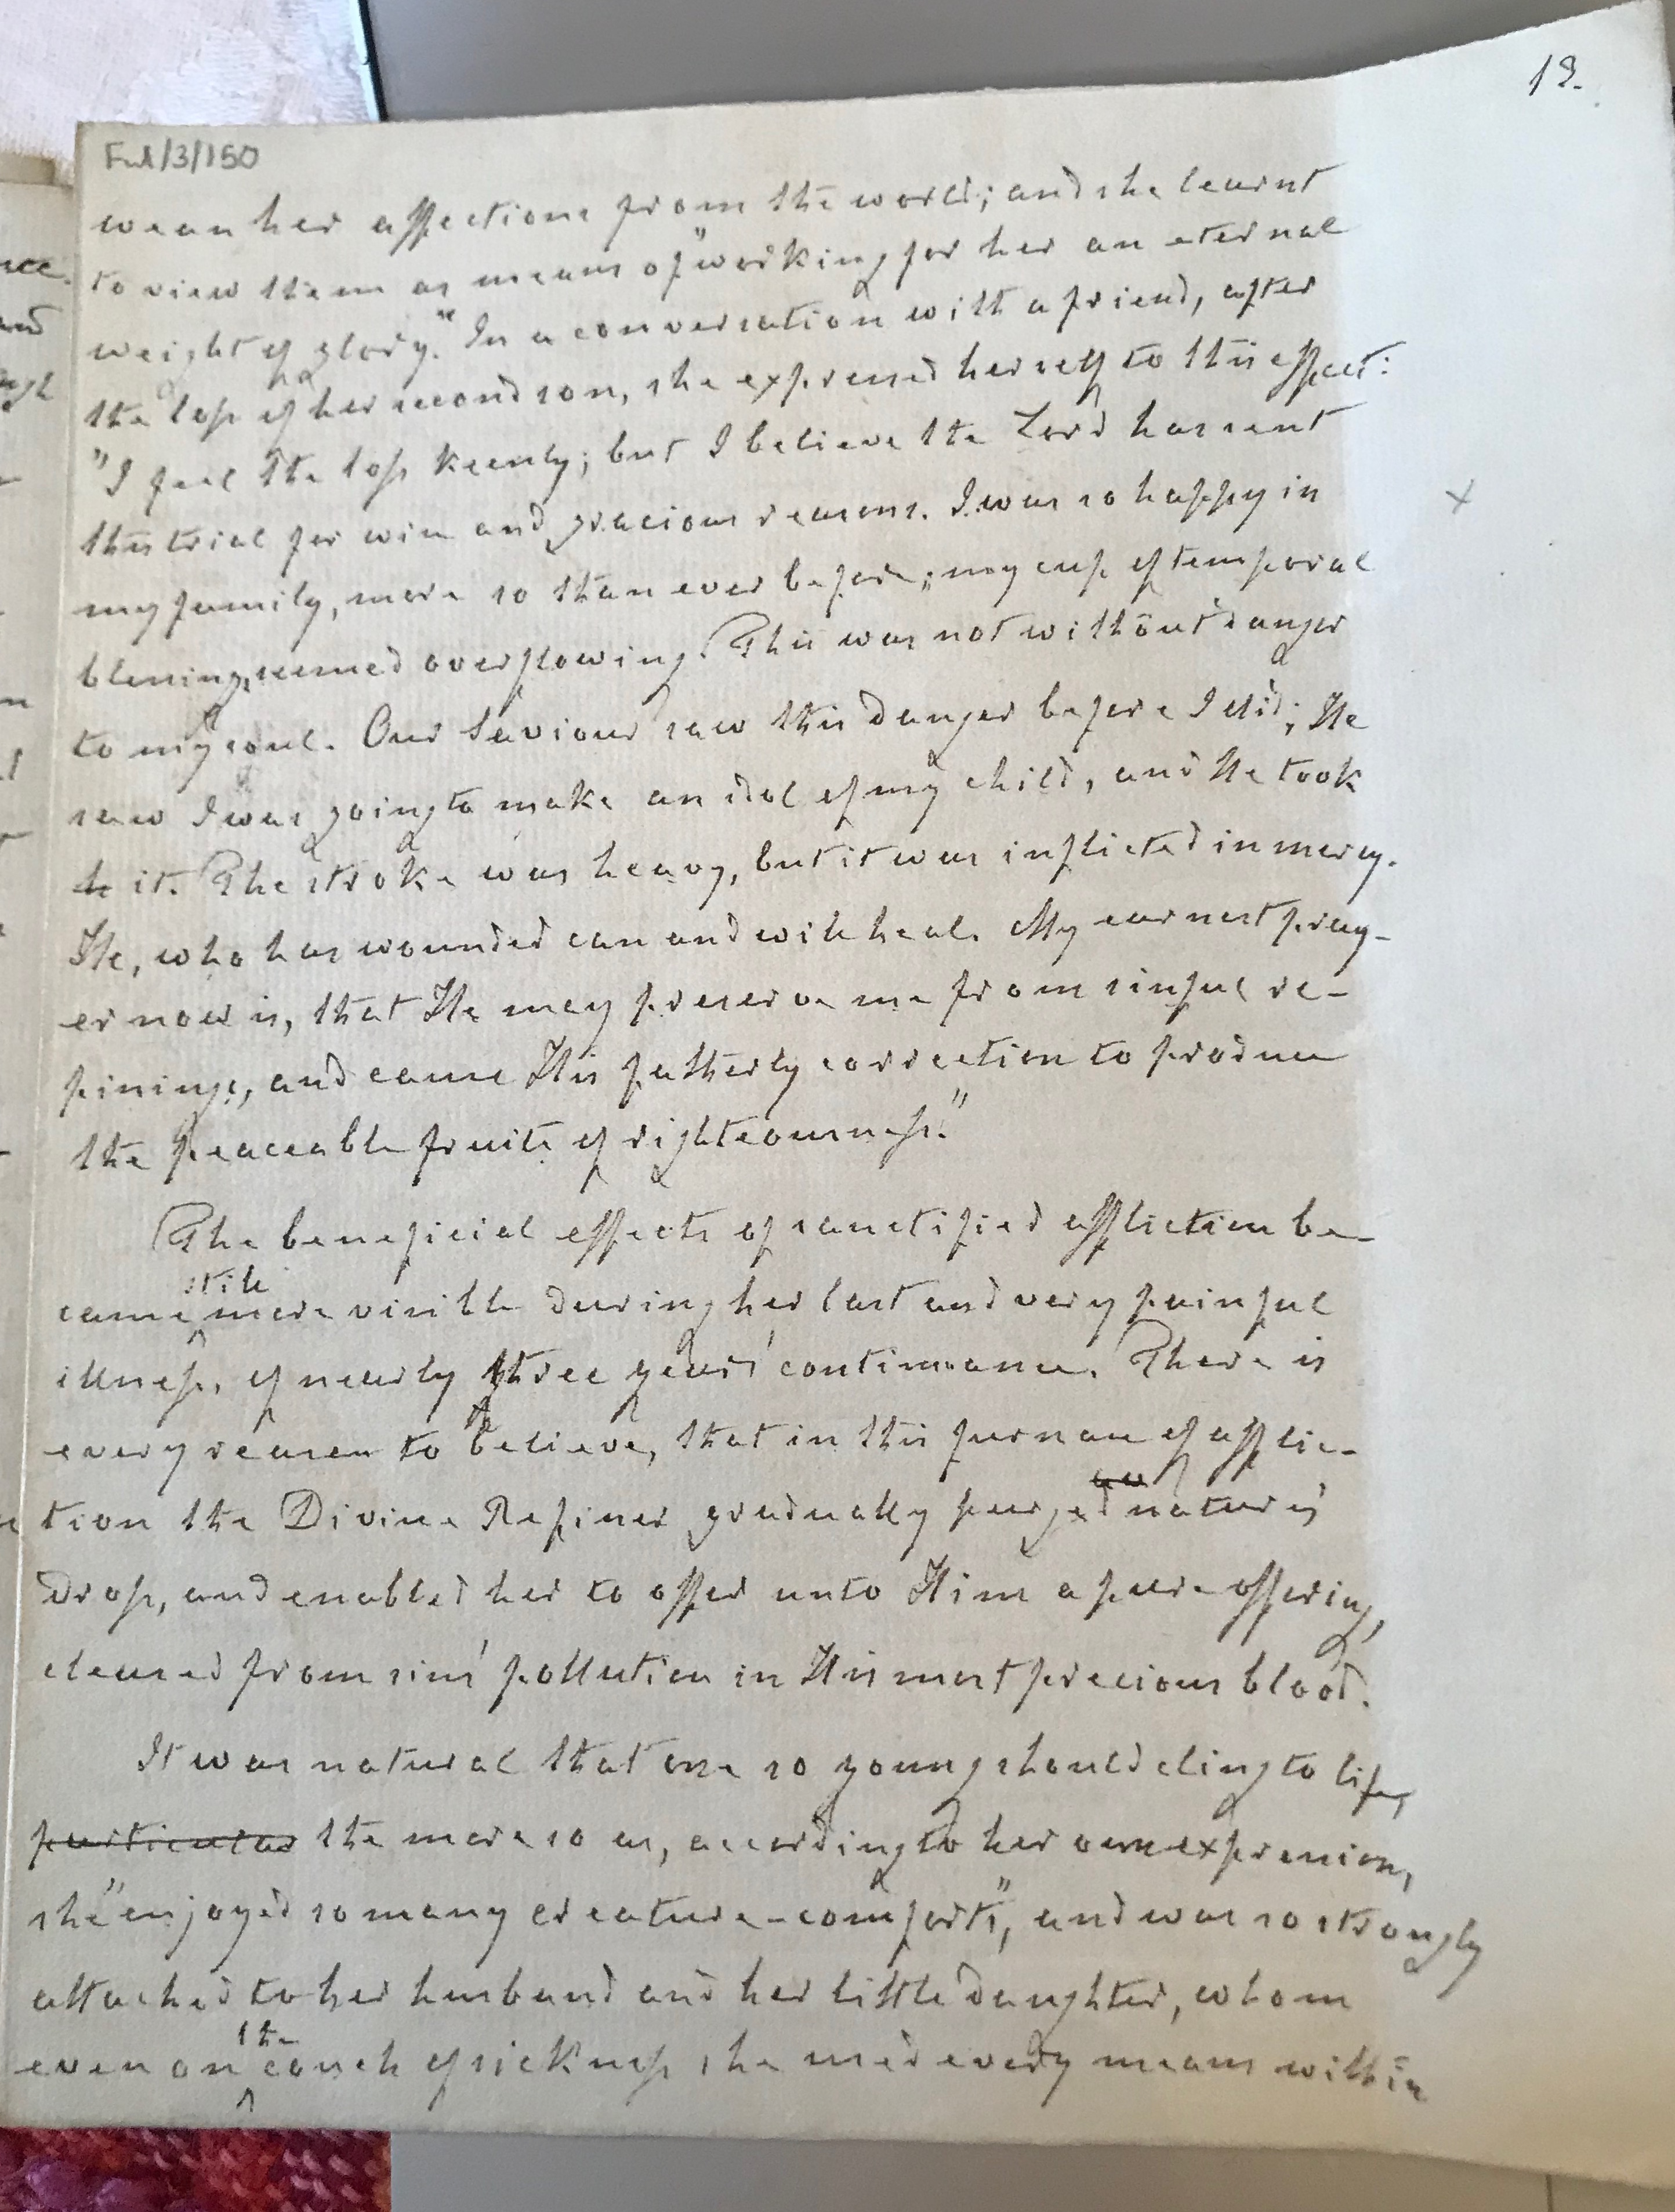 19.
Ful/3/150
wean her affections from the world; and she learnt
to view them as means of "working for her an eternal
weight of glory." In a conversation with a friend, after
the loss of her second son, she expressed herself to this effect:
"I feel the loss keenly; but I believe the Lord has sent
this trial for wise and gracious reasons. I was so happy in
my family, more so than ever before; my cup of temporal
blessings seemed overflowing. This was not without danger
to my soul. Our Saviour saw this danger before I did; He
saw I was going to make an idol of my child, and He took
it. The stroke was heavy, but it was inflicted in mercy.
He, who has wounded can and will heal. My earnest pray-
er now is, that He may preserve me from sinful re-
pinings, and cause His fatherly correction to produce
the peaceable fruits of righteousness."
The beneficial effects of sanctified affliction be-
came still more visible during her last and very painful
illness, of nearly three years' continuance. There is
every reason to believe, that in this furnace of afflic-
tion the Divine Refiner gradually purged nature's
dross, and enabled her to offer unto Him a pure offering,
cleansed from sins' pollution in His most precious blood.
It was natural that one so young should cling to life,
particular the more so as, according to her own expression,
she "enjoyed so many creature-comforts", and was so strongly
attached to her husband and her little daughter, whom
even on the couch of sickness she used every means within